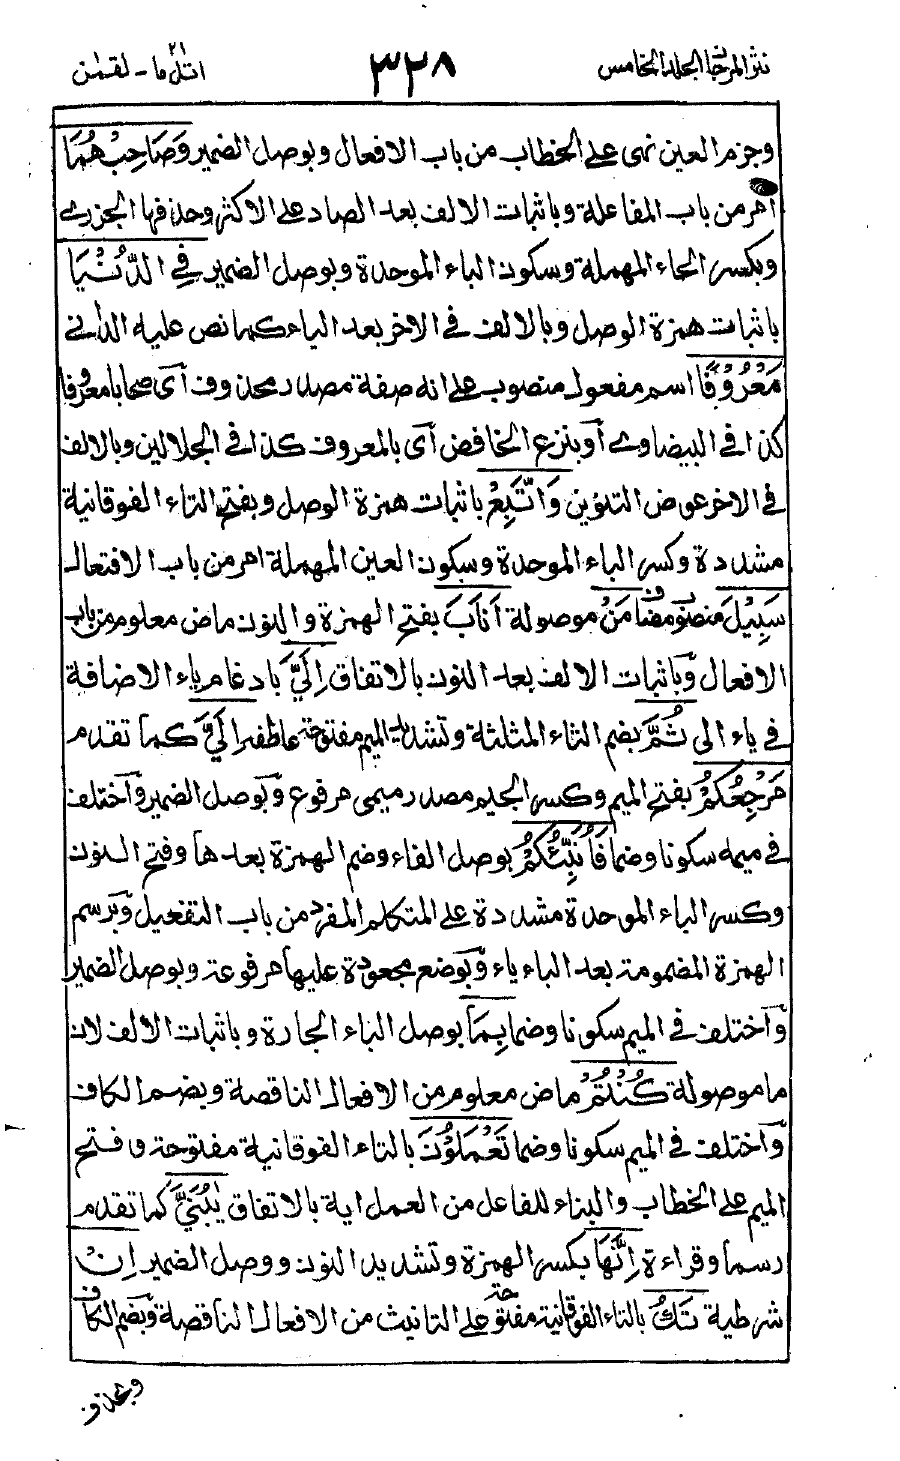 نثر المرجان الجلد الخامس ٣٢٨ اتل ما ٢١ - لقمٰن
وجزم العين نهى على الخطاب من باب الافعال وبوصل الضمير وَصَاحِبْهُمَا
امر من باب المفاعلة وباثبات الالف بعد الصاد على الاكثر وحذفها الجزرى
وبكسر الحاء المهملة وسكون الباء الموحدة وبوصل الضمير فِي الدُّنْيَا
باثبات همزة الوصل وبالالف فى الاخر بعد الياء كما نص عليه الدانى
مَعْرُوْفًا اسم مفعول منصوب على انه صفة مصدر محذوف آى صحابا معروفا
كذا فى البيضاوى آو بنزع الخافض آى بالمعروف كذا فى الجلالين وبالالف
فى الاخر عوض التنوين وَاتَّبِعْ باثبات همزة الوصل وبفتح التاء الفوقانية
مشددة وكسر الباء الموحدة وسكون العين المهملة امر من باب الافتعال
سَبِيْلَ منصوب مضاف مَنْ موصولة اَنَابَ بفتح الهمزة والنون ماض معلوم من باب
الافعال وبَاثبات الالف بعد النون بالاتفاق اِلَيَّ بادغام ياء الاضافة
فى ياء الى ثُمَّ بضم الثاء المثلثة وتشديد الميم مفتوحة عاطفة اِلَيَّ كما تقدم
مَرْجِعُكُمْ بفتح الميم وكسر الجيم مصدر ميمى مرفوع وبَوصل الضمير وآختلف
فى ميمه سكونا وضما فَاُنَبِّئُكُمْ بوصل الفاء وضم الهمزة بعدها وفتح النون
وكسر الباء الموحدة مشددة على المتكلم المفرد من باب التفعيل وبَرسم
الهمزة المضمومة بعد الباء ياء وبَوضع مجعودة عليها مرفوعة وبوصل الضمير
وآختلف فى الميم سكونا وضما بِمَا بوصل الباء الجارة وباثبات الالف لان
ما موصولة كُنْتُمْ ماض معلوم من الافعال الناقصة وبضم الكاف
وآختلف فى الميم سكونا وضما تَعْمَلُوْنَ بالتاء الفوقانية مفتوحة وفتح
الميم على الخطاب والبناء للفاعل من العمل اية بالاتفاق يٰبُنَيَّ كما تقدم
رسما وقراءة اِنَّهَا بكسر الهمزة وتشديد النون ووصل الضمير اِنْ
شرطية تَكُ بالتاء الفوقانية مفتوحة على التانيث من الافعال الناقصة وبضم الكاف
وبحذف